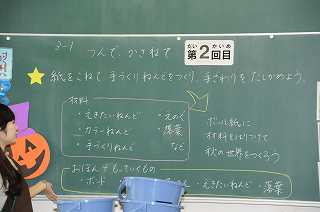 3-1
つんで、かさねて
だい かいめ
第2回目
紙をこねて、手づくりねんどをつくり、手ざわりを たしかめよう。
材料
・えきたいねんど ・えのぐ
・カラーねんど ・落葉
・手づくりねんど など
ボール紙に
材料をはりつけて
秋の世界をつくろう
おぼんにもっていくもの
・ボード ・えきたいねんど ・落葉